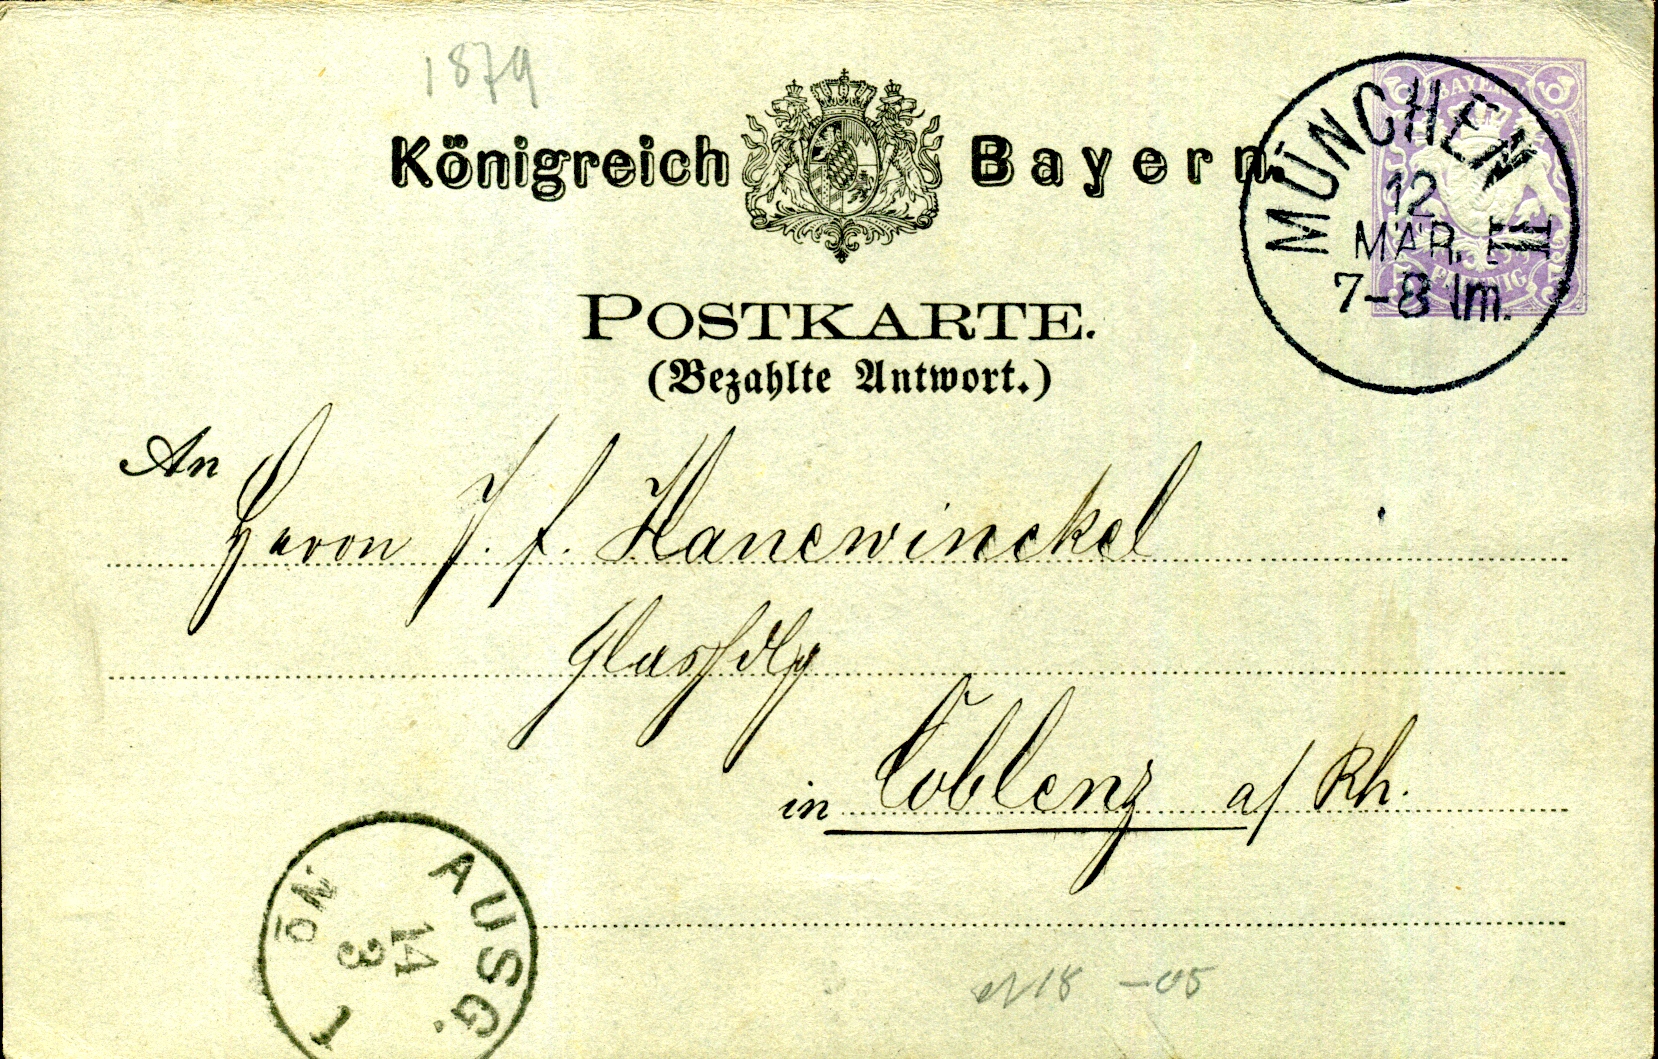 1879
Königreich Bayern.
BAYERN
MÜNCHEN III
12
MÄR.
7-8 Nm.
PFENNIG
POSTKARTE.
(Bezahlte Antwort.)
An
Herrn J. F. Hanewinckel
Glashdlg
in Coblenz a/ Rh.
AUSG.
14
3
No 1
18 -05